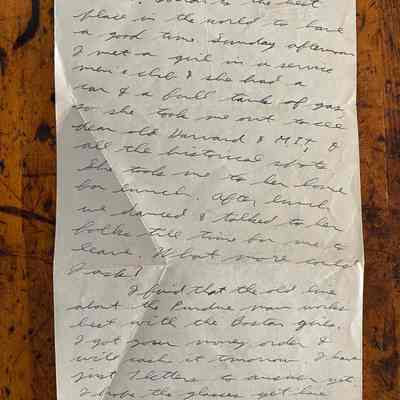 is the best
place in the world to have
a good time. Sunday afternoon
I met a girl in a service
men's club & she had a
car & a full tank of gas,
so she took me out to see
dear old Harvard & M.I.T. &
all the historical spots
She took me to her home
for lunch. After lunch
we danced & talked to her
folks till time for me to
leave. What more could
I ask!
I find that the old line
about the Purdue man works
best with the Boston girls.
I got your money order &
will cash it tomorrow I have
just 7 letters to answer yet.
I hope the glasses get here